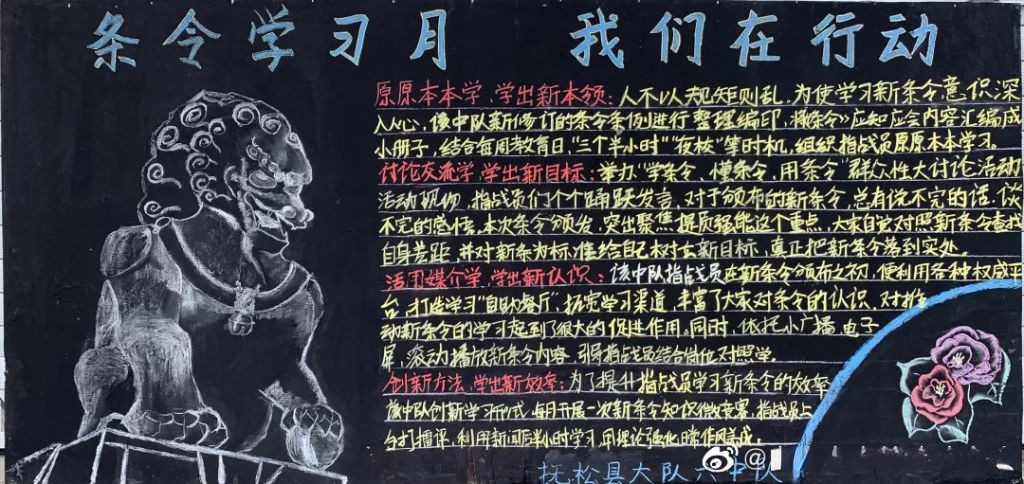 条令学习月 我们在行动
原原本本学,学出新本领:人不以规矩则乱,为使学习新条令意识深
入人心,该中队新修订的条令条例进行整理编印,将《条令》应知应会内容汇编成
小册子,结合每周教育日、"三个半小时""夜校"等时机,组织指战员原原本本学习。
讨论交流学,学出新目标:举办"学条令、懂条令、用条令"群众性大讨论活动
活动现场,指战员们个个踊跃发言,对于颁布的新条令,总有说不完的话、谈
不完的感悟,本次条令颁发,突出聚焦提质强能这个重点,大家自觉对照新条令查找
自身差距,并对新条令标准给自己树立新目标,真正把新条令落到实处。
活用媒介学,学出新认识:该中队指战员在新条令颁布之初,便利用各种权威平
台,打造学习"自助餐厅",拓宽学习渠道,丰富了大家对条令的认识,对推
动新条令的学习起到了很大的促进作用,同时,依托小广播、电子
屏,滚动播放新条令内容,引导指战员结合岗位对照学。
创新方法,学出新效率:为了提升指战员学习新条令的效率
该中队创新学习形式,每月开展一次新条令知识微竞赛,指战员上
台打擂评,利用新闻后半小时学习,用理论强化日常作风养成。
抚松县大队六中队